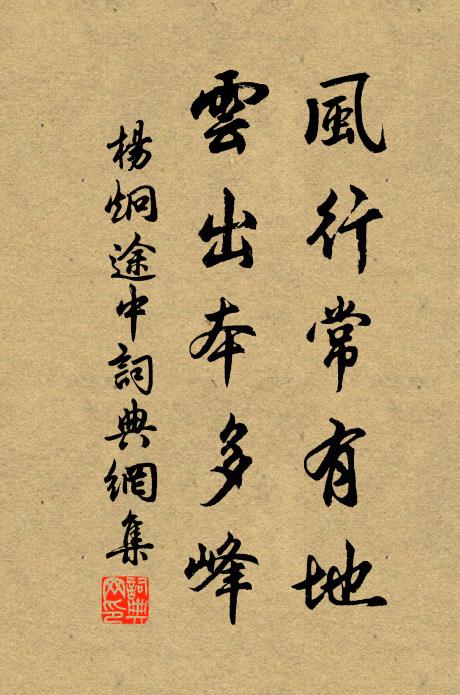 風行常有地
雲出本多峰
楊炯途中詞典網集
詞典网印